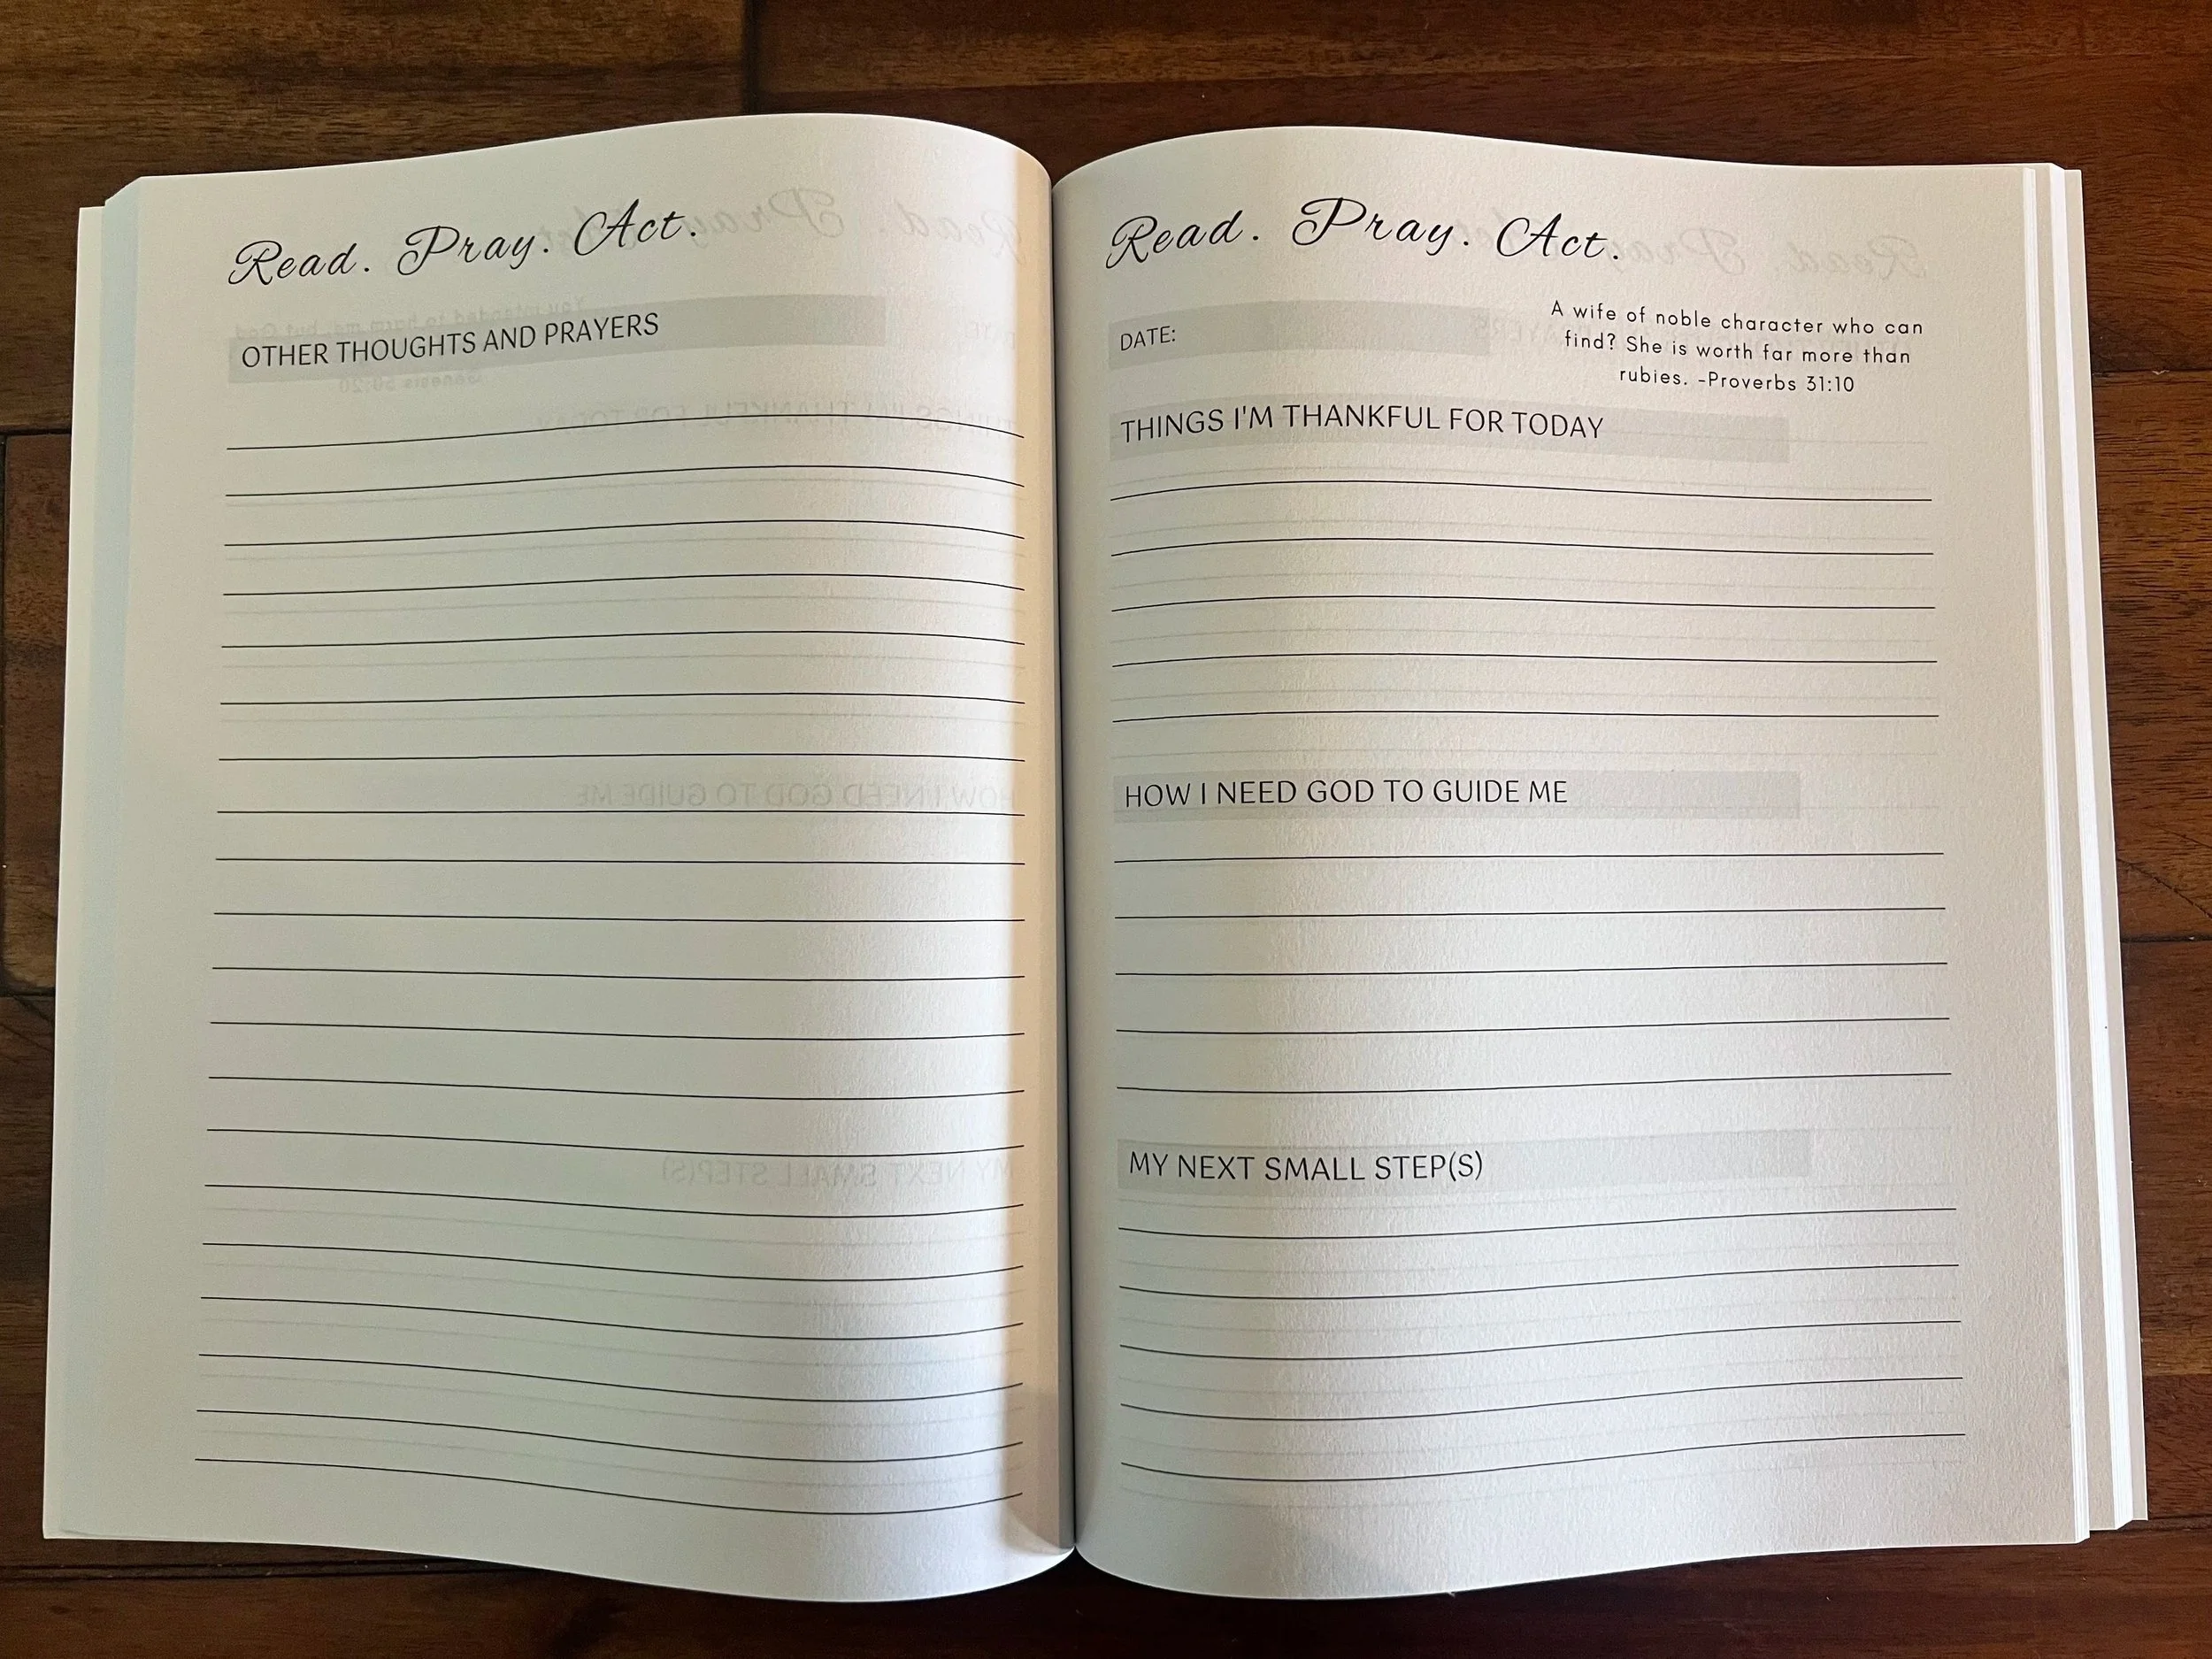 Read. Pray. Act.
OTHER THOUGHTS AND PRAYERS
Read. Pray. Act.
DATE:
A wife of noble character who can
find? She is worth far more than
rubies. -Proverbs 31:10
THINGS I'M THANKFUL FOR TODAY
HOW I NEED GOD TO GUIDE ME
MY NEXT SMALL STEP(S)